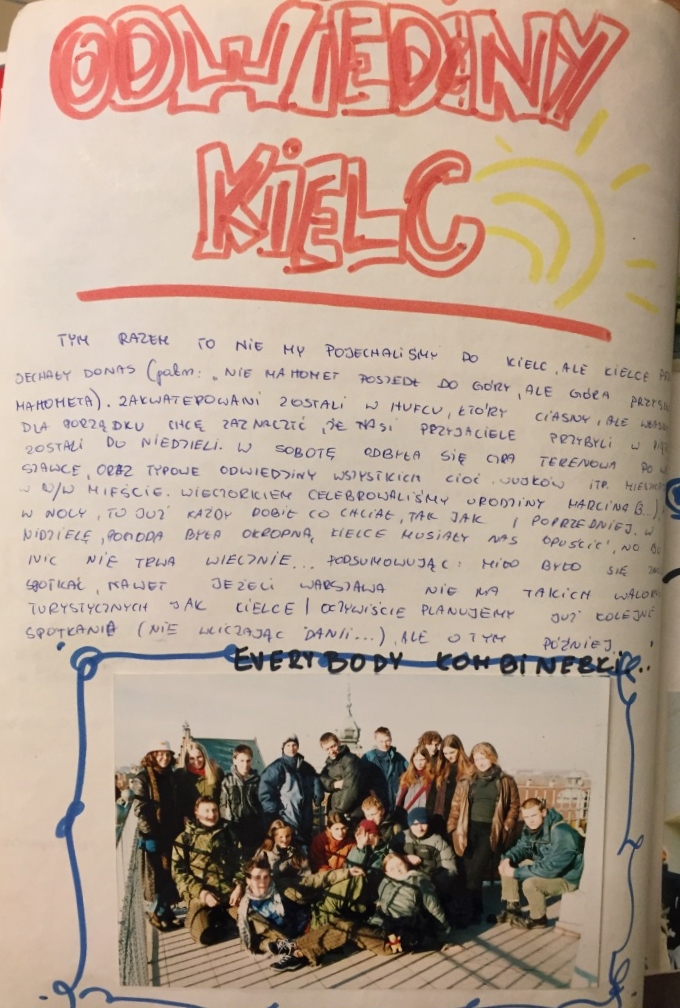 ODWIEDZINY
KIELC
TYM RAZEM TO NIE MY POJECHALIŚMY DO KIELC, ALE KIELCE
JECHAŁY DO NAS (palm: „NIE MAHOMET POSZEDŁ DO GÓRY, ALE GÓRA
MAHOMETA). ZAKWATEROWANI ZOSTALI W HUFCU, KTÓRY CIASNY, ALE
DLA PORZĄDKU CHCĘ ZAZNACZYĆ, ŻE NASI PRZYJACIELE PRZYBYLI W
ZOSTALI DO NIEDZIELI. W SOBOTĘ ODBYŁA SIĘ GRA TERENOWA PO
SZAWCE, ORAZ TYPOWE ODWIEDZINY WSZYSTKICH CIOĆ, WUJKÓW ITP.
W N/W MIEŚCIE. WIECZORKIEM CELEBROWALIŚMY URODZINY MARCINA
W NOCY, TO JUŻ KAŻDY ROBIŁ CO CHCIAŁ, TAK JAK I POPRZEDNIEJ. W
NIDZIELĘ, POGODA BYŁA OKROPNA, KIELCE MUSIAŁY NAS OPUŚCIĆ, NO
NIC NIE TRWA WIECZNIE... PODSUMOWUJĄC: MIŁO BYŁO SIĘ
SPOTKAĆ, NAWET JEŻELI WARSZAWA NIE MA TAKICH
TURYSTYCZNYCH JAK KIELCE I OCZYWIŚCIE PLANUJEMY JUŻ KOLEJNE
SPOTKANIA (NIE WLICZAJĄC DANII...), ALE O TYM PÓŹNIEJ...
EVERYBODY KOMBINERKI...